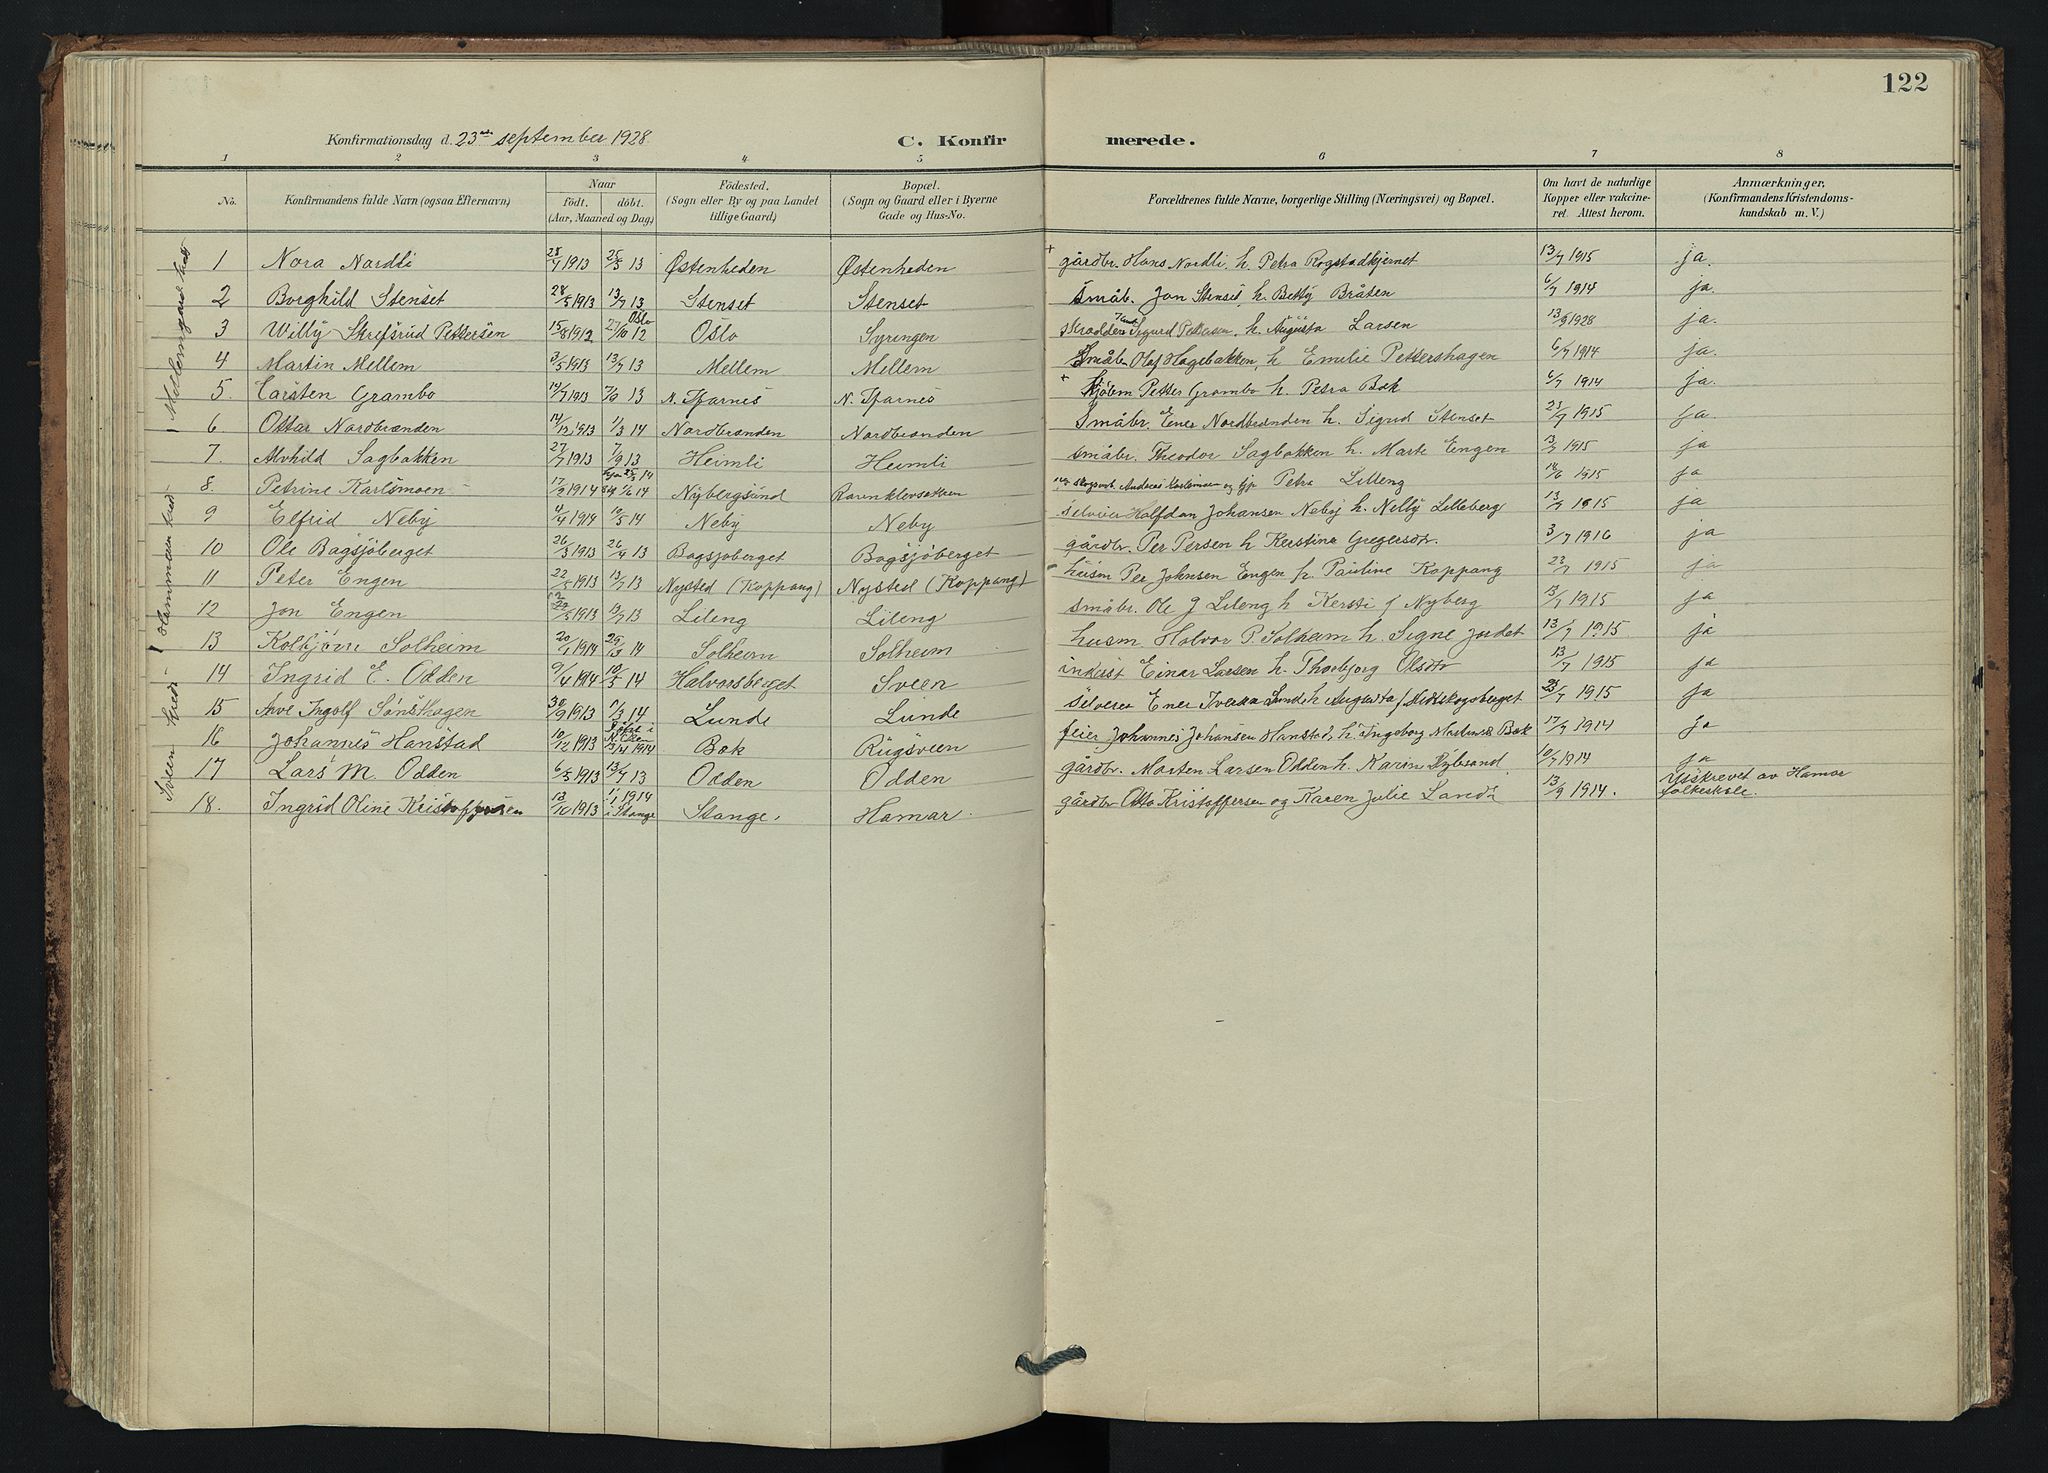 122
Konfirmationsdag d. 23 september 1928. C. Konfirmerede.
1 2 3 4 5 6 7 8
No. Konfirmandens fulde Navn (ogsaa Efternavn) Naar Födt. döbt. (Aar, Maaned og Dag) Födested. (Sogn eller By og paa Landet tillige Gaard) Bopæl. (Sogn og Gaard eller i Byerne Gade og Hus-No. Forældrenes fulde Navne, borgerlige Stilling (Næringsvei) og Bopæl. Om havt de naturlige Kopper eller vakcineret. Attest herom. Anmærkninger, (Konfirmandens Kristendomskundskab m. V.)
1 Nora Nordli 1913 25/5 13 Østenheden Østenheden + gårdbr. Hans Nordli, h. Petra Rogstadkjernet 13/7 1915 ja.
2 Borghild Stenset 28/5 1913 13/7 13 Stenset Stenset småb. Jon Stenset, h. Betty Bråten 6/7 1914 ja.
3 Willy Skrefsrud Pettersen 15/8 1912 27/10 12 Oslo Oslo Syringen skrædder Sigurd Pettersen, h. Augusta Larsen 1928 ja.
4 Martin Mellem 3/5 1913 13/7 13 Mellem Mellem Småbr Olaf Hagebakken, h Emilie Pettershagen 6/7 1914 ja.
5. Carsten Grambo 1913 13 N. N. + Petter Grambo h. Petra Bæk 6/7 1914 ja.
6 Ottar Nordbrænden 14/12 1913 1/3 14 Nordbrænden Nordbrænden Småbr. Ener Nordbrænden h. Sigrid Stenset 23/7 1915 ja.
7. Alvhild Sagbakken 27/7 1913 7/9 13 Heimli Heimli småbr. Theodor Sagbakken h. Marte Engen 13/7 1915 ja
8. Petrine Karlsmoen 17/2 1914 14 Nybergsund Petra Lilleng 1915 ja
9 Elfrid Neby 4/4 1914 10/5 14 Neby Neby Halfdan Johansen Neby h. Nelly Lilleberg 13/7 1915 ja
10 Ole Bagsjøberget 26/3 1913 26/4 13 Bagsjøberget Bagsjöberget gårdbr. Per Persen h Kerstina Gregersdtr. 3/7 1916 ja
11 Peter Engen 22/5 1913 13/7 13 Nysted (Koppang) Nysted (Koppang) husm Per Johnsen Engen h. Pauline Koppang 22/7 1915 ja
12 Jon Engen 1913 13/7 13 Lileng Lileng småbr. Ole J Lileng h Kersti J Nyberg 13/7 1915 ja
13 Kolbjørn Solheim 20/1 1914 29/3 14 Solheim Solheim husm Halvor P. Solheim h. Signe Jordet 13/7 1915 ja
14 Ingrid E. Odden 9/4 1914 10/5 14 Halvorsberget Sveen Einar Larsen h. Thorbjorg Olsdtr 13/7 1915 ja
15 Arve Ingolf Sønskagen 30/9 1913 11/3 14 Lunde Lunde Ener Lunde h Augusta 1915 ja
16 Johannes Hanstad 10/12 1913 1914 Bæk Rugsveen feier Johannes Johansen Hanstad, h. Ingeborg Bæk 17/7 1914 ja
17 Lars M. Odden 6/5 1913 13/7 13 Odden Odden gårdbr. Morten Larsen Odden h. Karin 10/7 1914 ja
18. Ingrid Oline Kristoffersen 13/10 1913 1/1 1914 i Stange Stange, Hamar. gårdbr Otto Kristoffersen og Karen Julie 13/9 1914. Utskrevet av Hamar folkeskole.
Mellemgård kred
Hammeren kreds
Sveen kreds